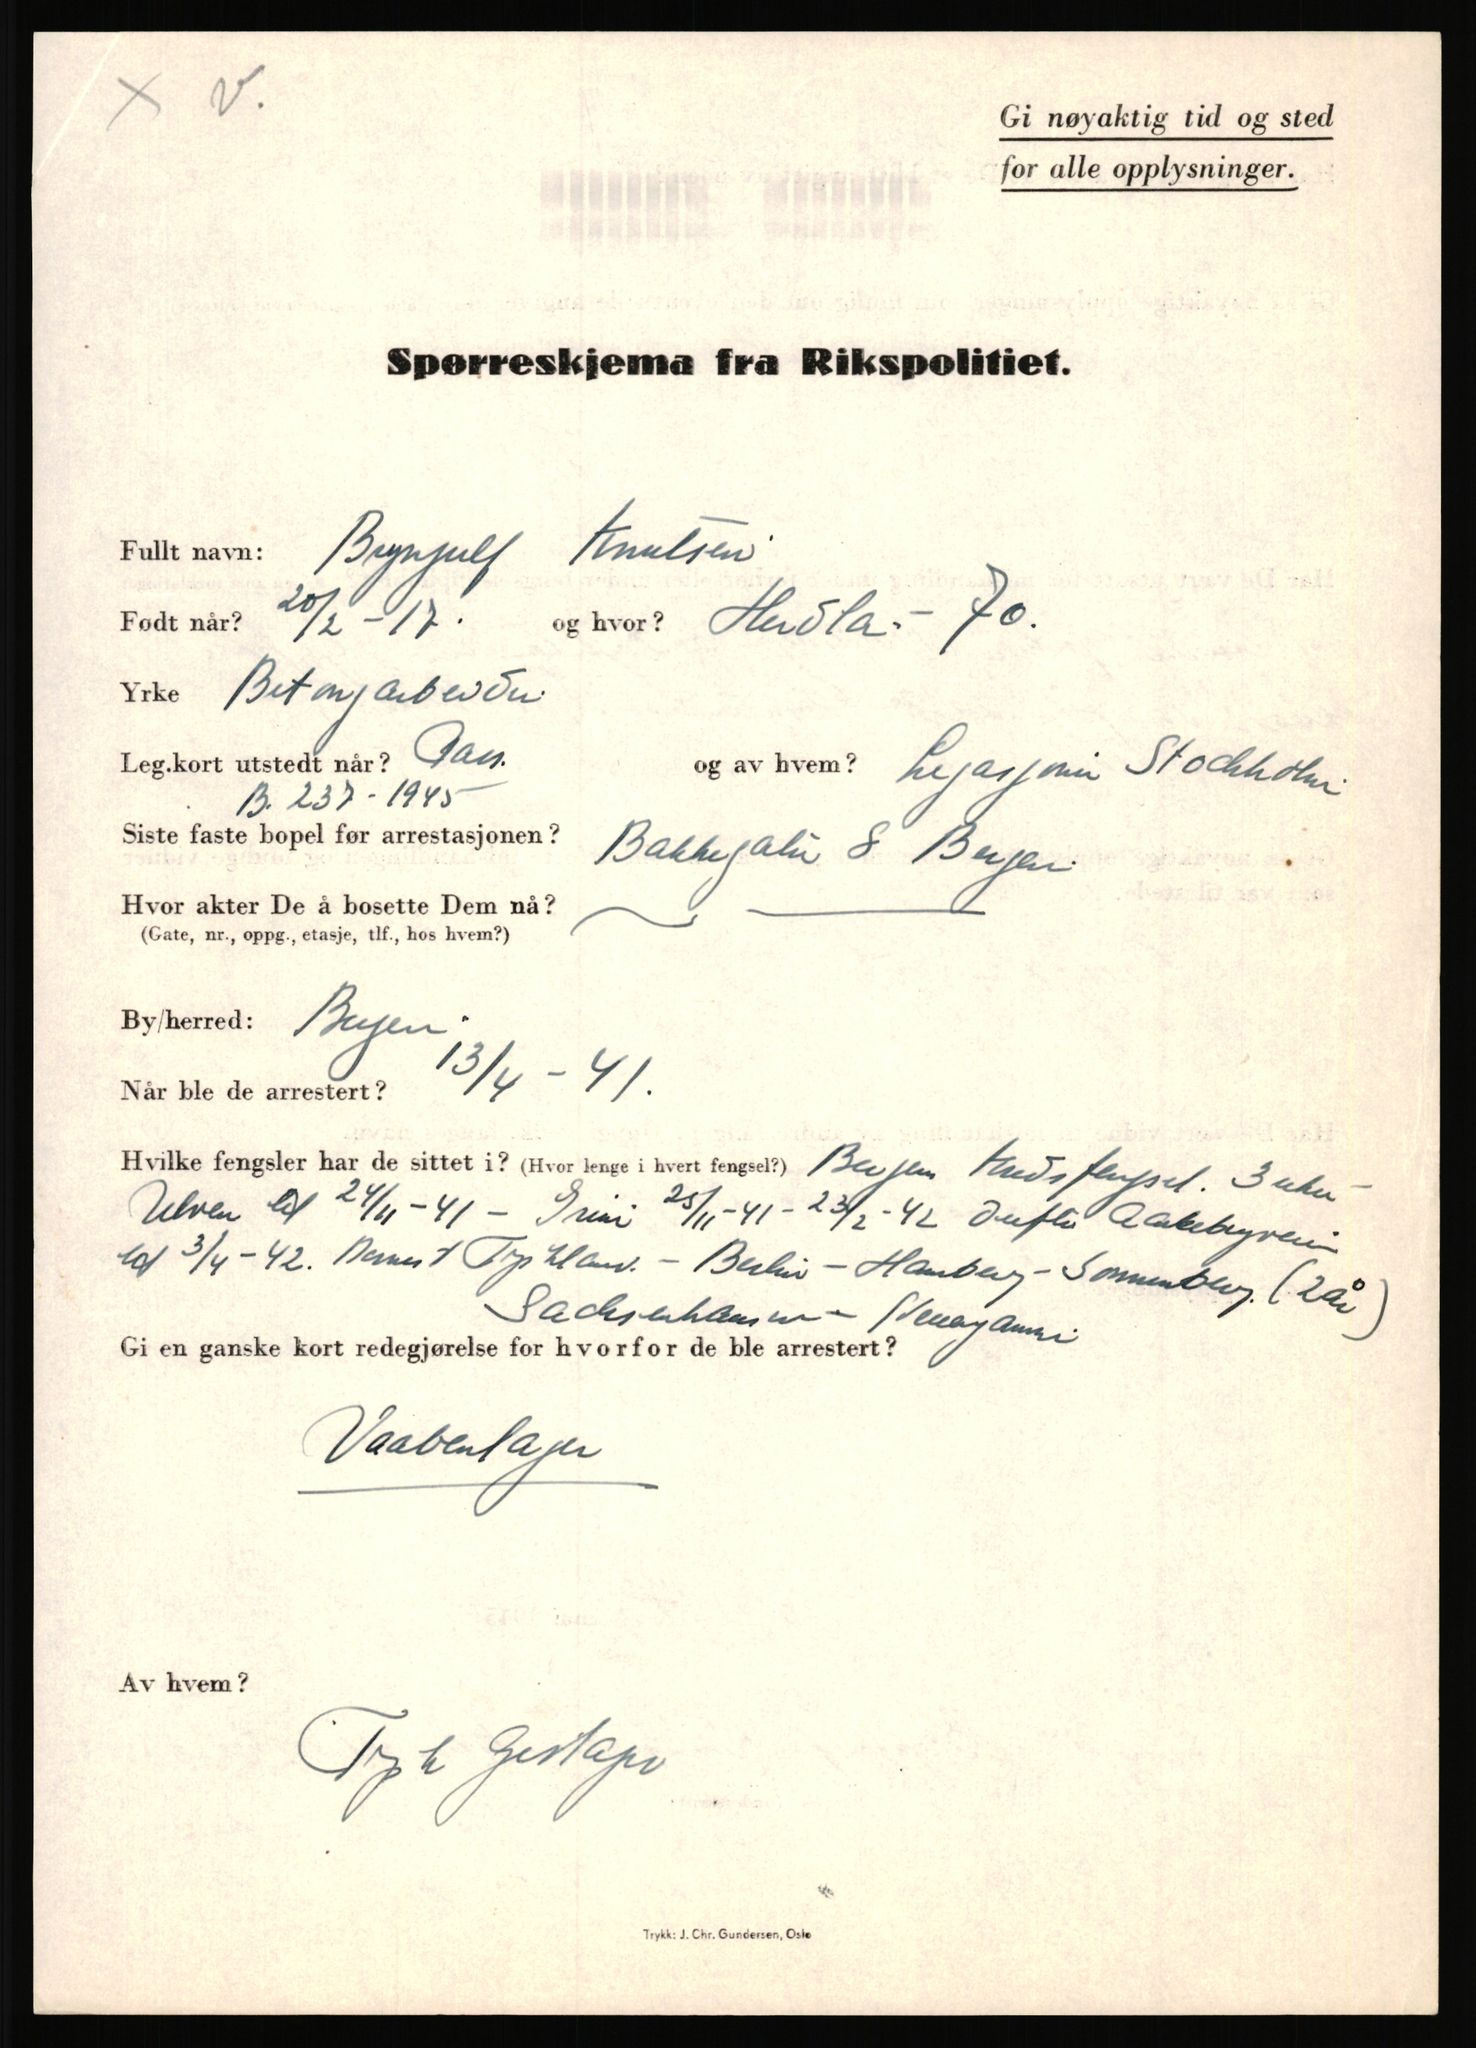 X V.
Gi nøyaktig tid og sted
for alle opplysninger.
Spørreskjema fra Rikspolitiet.
Fullt navn: Brynjulf Knutsen
Født når? 20/2 - 17. og hvor? Herdla. - 70.
Yrke Betongarbeider
Leg.kort utstedt når? Pass. og av hvem? Legasjonen Stockholm
B. 237 - 1945
Siste faste bopel før arrestasjonen? Bakkegaten 8 Bergen
Hvor akter De å bosette Dem nå?
(Gate, nr., oppg., etasje, tlf., hos hvem?)
By/herred: Bergen.
Når ble de arrestert? 13/4 - 41.
Hvilke fengsler har de sittet i? (Hvor lenge i hvert fengsel?) Bergen Kredsfengsel. 3 uker -
Ulven til 24/11 - 41 - Grini 25/11 - 41 - 23/2 - 42 derfter Aakebergveien
til 3/4 - 42. Dernest Tyskland. - Berlin - Hamburg - Sonnenberg. (2 år)
Sachsenhausen - Neuengamme
Gi en ganske kort redegjørelse for hvorfor de ble arrestert?
Vaabenlager
Av hvem?
Tysk Gestapo
Trykk: J. Chr. Gundersen, Oslo